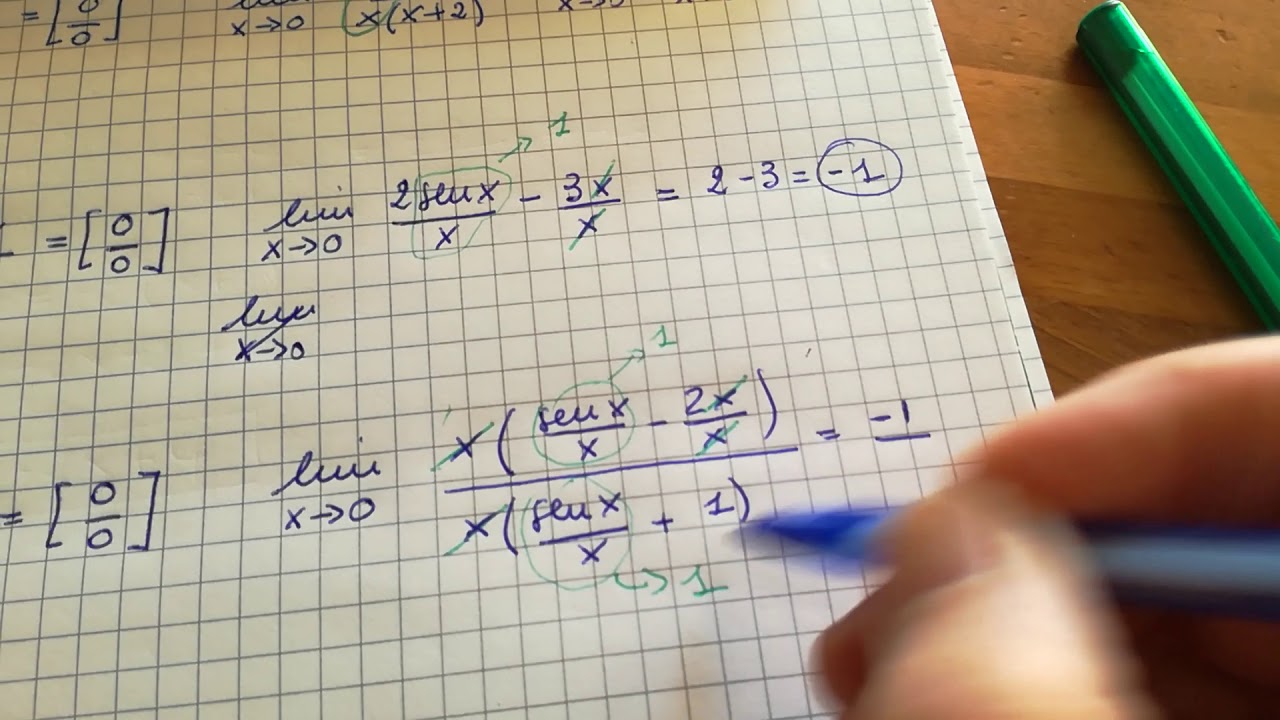 = [0/0] lim x→0 x(x+2)
= [0/0] lim x→0 2senx/x - 3x/x = 2-3 = -1
1
lim x→0
= [0/0] lim x→0 x(senx/x - 2x/x) / x(senx/x + 1) = -1
1
1